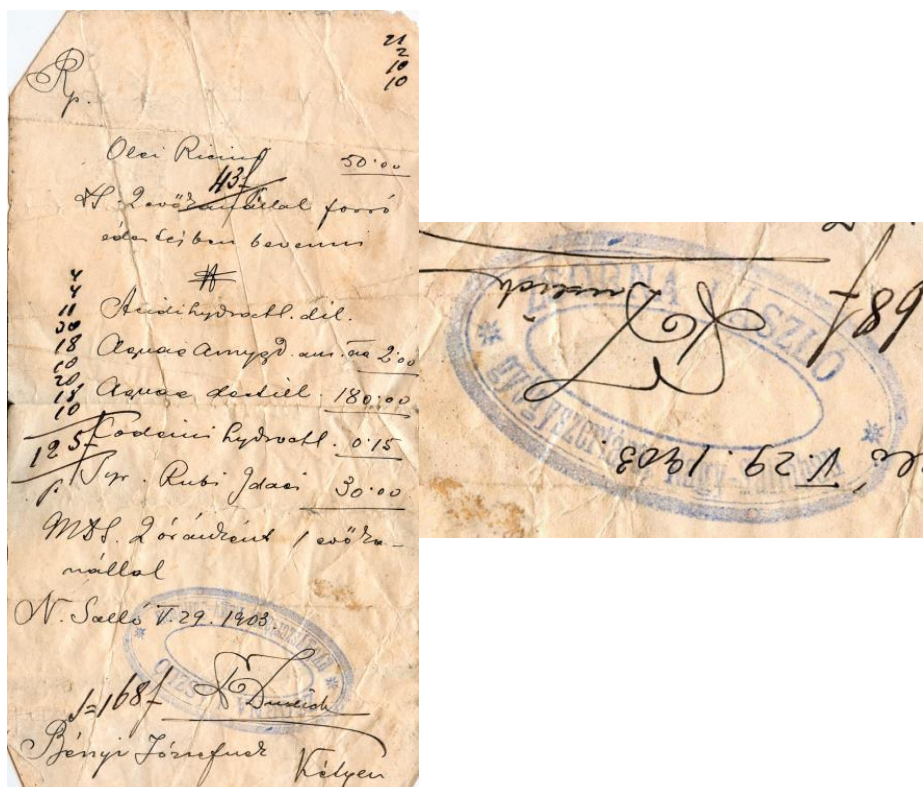 21
2
10
10
Rp.
Olei Ricini 50·00
43f
DS. 2 evőkanállal forró
édes tejben bevenni
4
4
11
30
18
10
20
18
10
125f
Acidi hydrochl. dil.
Aquae amygd. am. aa 2·00
Aquae destill. 180·00
Codeini hydrochl. 0·15
Syr. Rubi Idaei 30·00
MDS. 2 óránként 1 evőka-
nállal
N. Salló V. 29. 1903.
168f
Bényi Józsefnek
Kétyen
LÁSZLÓ
V. 29. 1903
68f